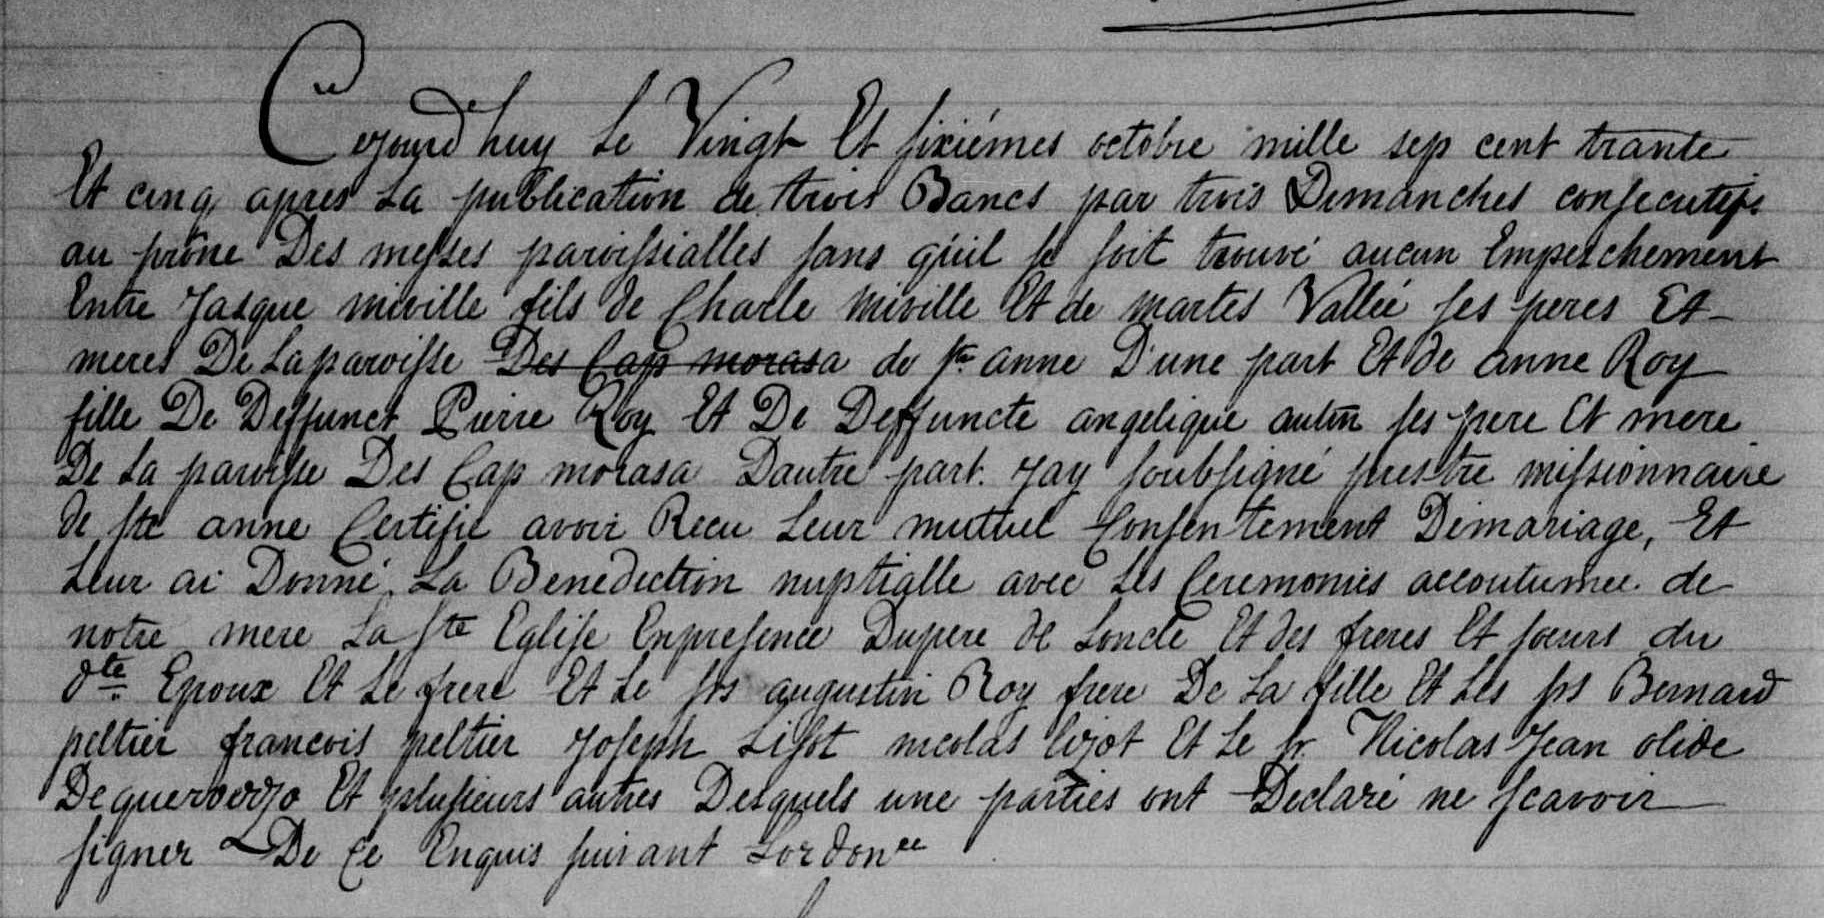 Cejourd'huy le Vingt Et sixiémes octobre mille sep cent trante
Et cinq apres La publication de trois Bancs par trois Dimanches consecutifs
au prône Des messes paroissialles sans qu'il se soit trouvé aucun Empeschement
Entre Jasque miville fils de Charle miville Et de martes Vallée ses peres Et
meres De Laparoisse Des Cap morasa de ste anne D'une part Et de anne Roy
fille De Deffunct Pierre Roy Et De Deffuncte angelique autin ses pere Et mere
De La paroisse Des Cap morasa Dautre part. Jay soubsigné prestre missionnaire
de ste anne Certifie avoir Recu Leur mutuel Consentement Demariage, Et
Leur ai Donné La Benediction nuptialle avec Les Ceremonies accoutumée de
notre mere La Ste Eglise Enpresence Dupere de Loncle Et des freres Et soeurs du
dte Epoux Et Le frere Et Le srs augustin Roy frere De La fille Et Les srs Bernard
peltier francois peltier Joseph Lisot nicolas lizot Et Le sr. Nicolas Jean olide
De Et plusieurs autres Desquels une parties ont Declaré ne scavoir
signer De Ce Enquis suivant Lordonce